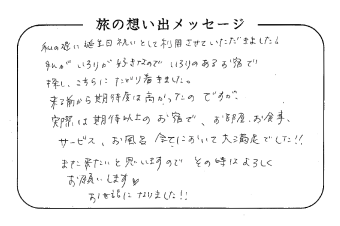 旅の想い出メッセージ
私の遅い誕生日祝いとして利用させていただきました!
私がいろりが好きなのでいろりのあるお宿で
探し、こちらにたどり着きました。
来る前から期待度は高かったのですが、
実際は期待以上のお宿で、お部屋、お食事、
サービス、お風呂 全てにおいて大満足でした!!
また来たいと思いますので その時はよろしく
お願いします♡
お世話になりました!!